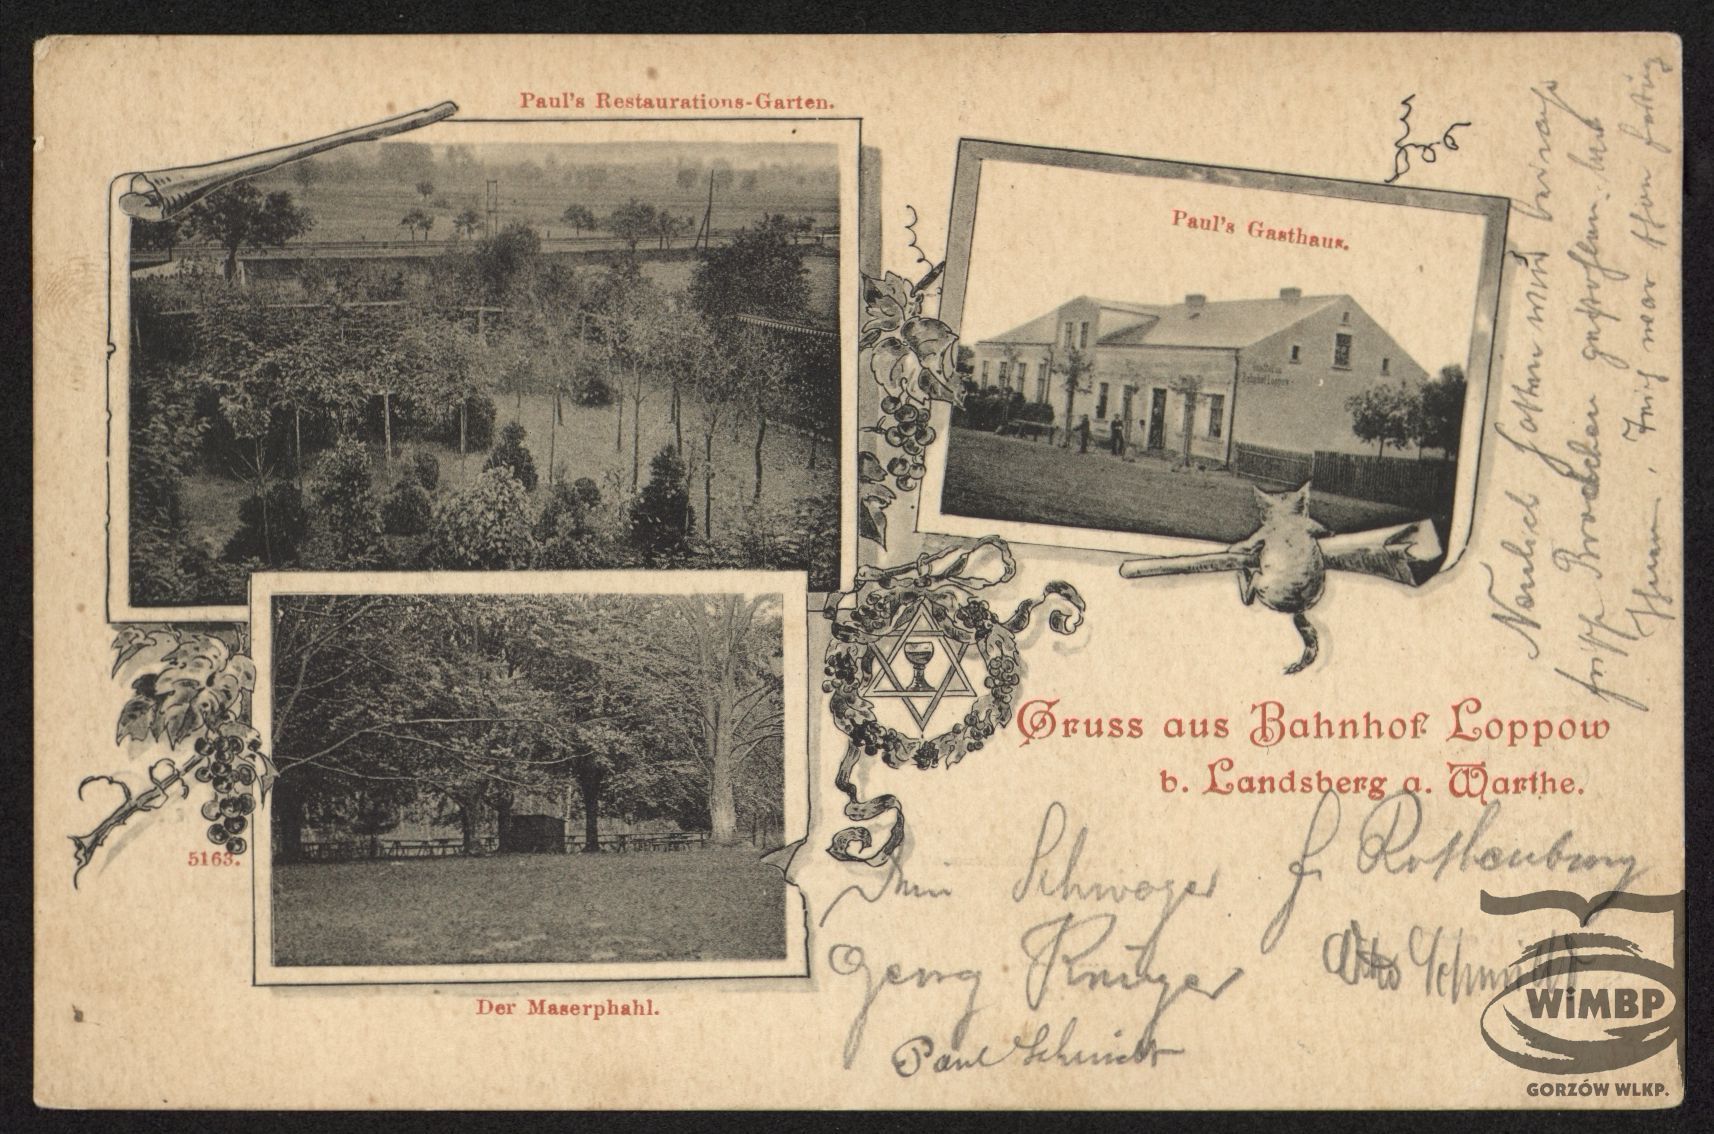 Paul's Restaurations-Garten.
Paul's Gasthaus.
Bahnhof Loppow
Gruss aus Bahnhof Loppow
b. Landsberg a. Warthe.
5163.
Der Maserphahl.
Neulich hatten wir beinah
frisch Brocken gestohlen.
Schwager Fr. Rothenburg
Georg Krüger
Otto Schmidt
Paul Schmidt
WiMBP
GORZÓW WLKP.